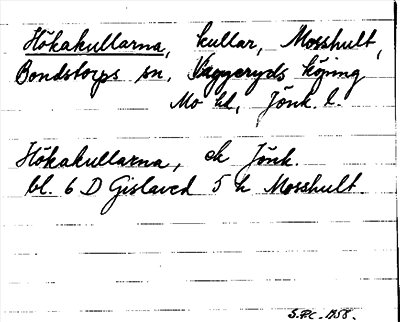 Hökakullarna, kullar, Mosshult,
Bondstorps sn, Vaggeryds köping
Mo hd, Jönk. l.
Hökakullarna, ek Jönk.
bl. 6 D Gislaved 5 h Mosshult.